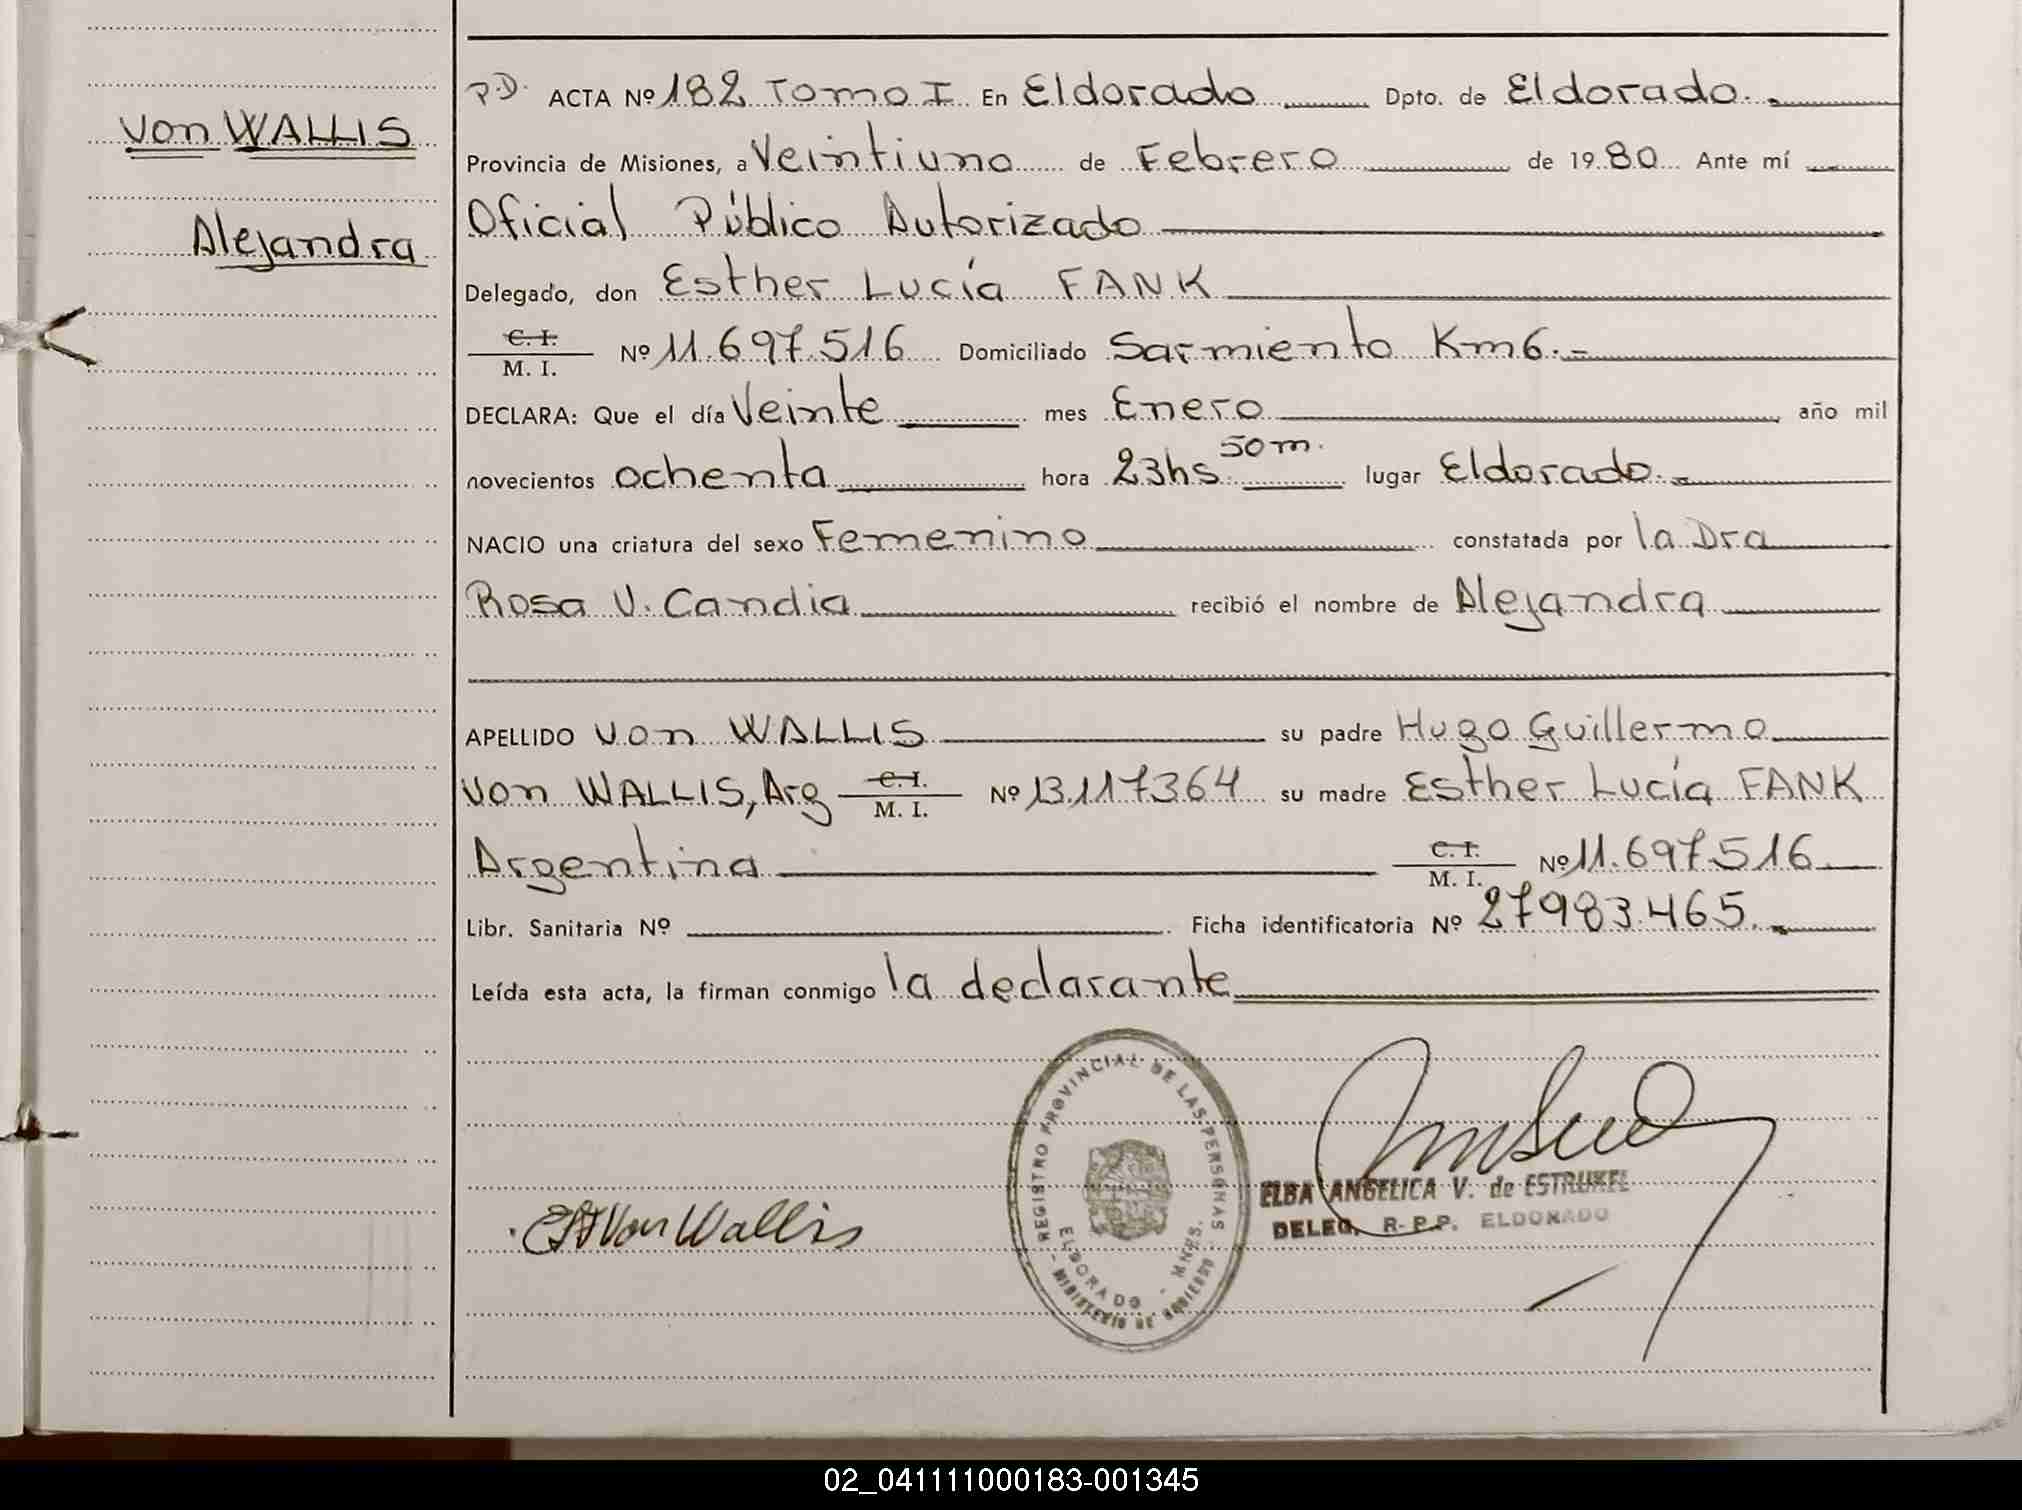 von WALLIS
Alejandra
P.D. ACTA Nº 182 Tomo I En Eldorado Dpto. de Eldorado.
Provincia de Misiones, a Veintiuno de Febrero de 1980 Ante mí
Oficial Público Autorizado
Delegado, don Esther Lucía FANK
C. I.
M. I. Nº 11.697.516 Domiciliado Sarmiento Km6.-
DECLARA: Que el día Veinte mes Enero año mil
novecientos ochenta hora 23hs 50m. lugar Eldorado.-
NACIO una criatura del sexo Femenino constatada por la Dra
Rosa V. Candia recibió el nombre de Alejandra
APELLIDO von WALLIS su padre Hugo Guillermo
von WALLIS, Arg C. I. M. I. Nº 13.117364 su madre Esther Lucía FANK
Argentina C. I. M. I. Nº 11.697.516
Libr. Sanitaria Nº Ficha identificatoria Nº 27983465.
Leída esta acta, la firman conmigo la declarante
REGISTRO PROVINCIAL DE LAS PERSONAS
ELDORADO - MNES.
- MINISTERIO DE GOBIERNO -
Von Wallis
ELBA ANGELICA V. de ESTRUKEL
DELEG. R. P. P. ELDORADO
02_041111000183-001345